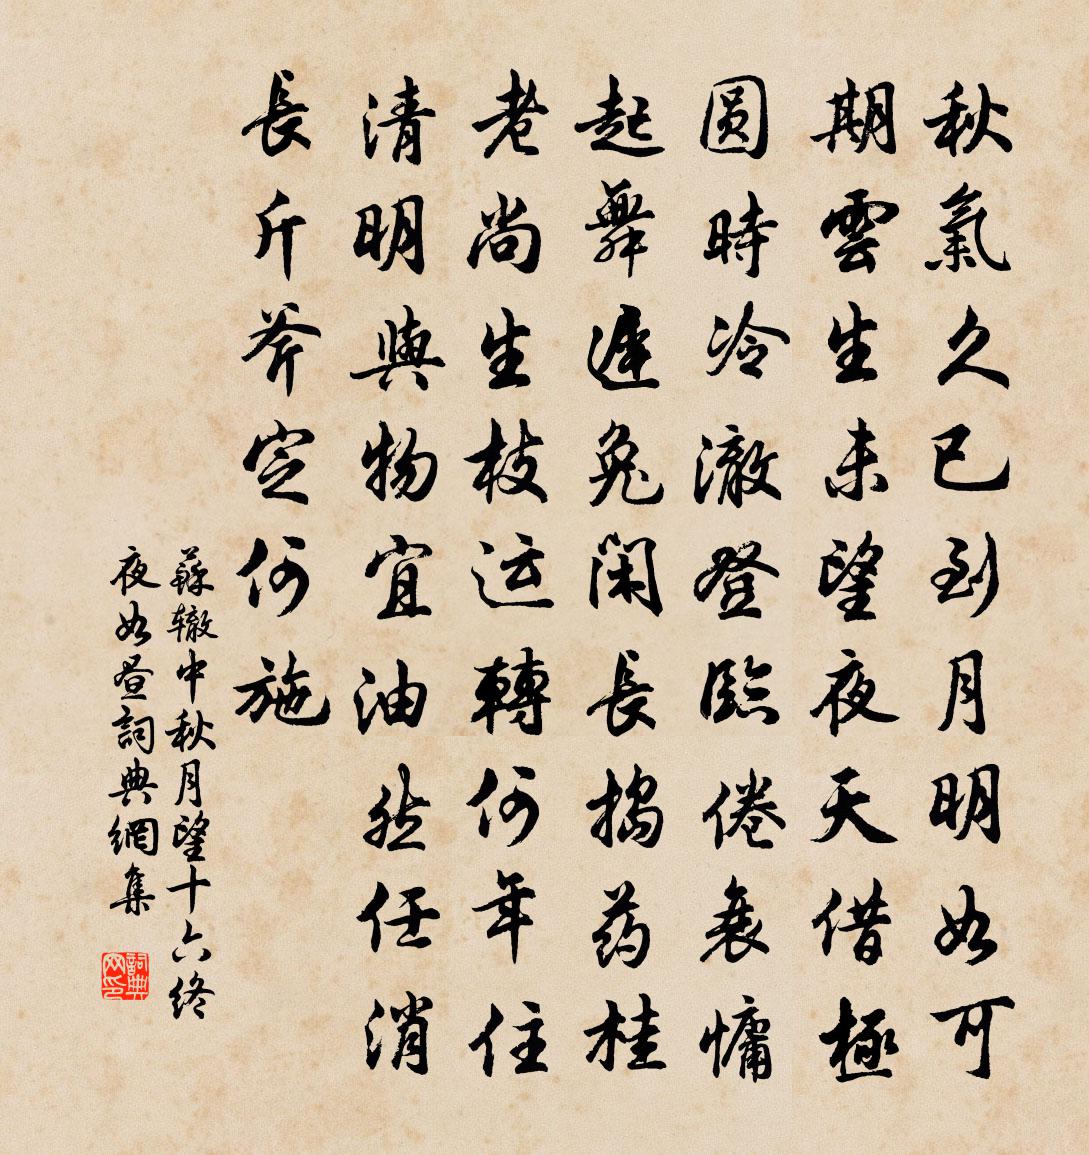 秋氣久已到月明如可
期雲生未望夜天借極
圓時冷澈登臨倦衰慵
起舞遲兔閑長搗药桂
老尚生枝运轉何年住
清明與物宜油然任消
長斤斧定何施
蘇辙中秋月望十六終
夜如昼詞典網集
詞典
网印